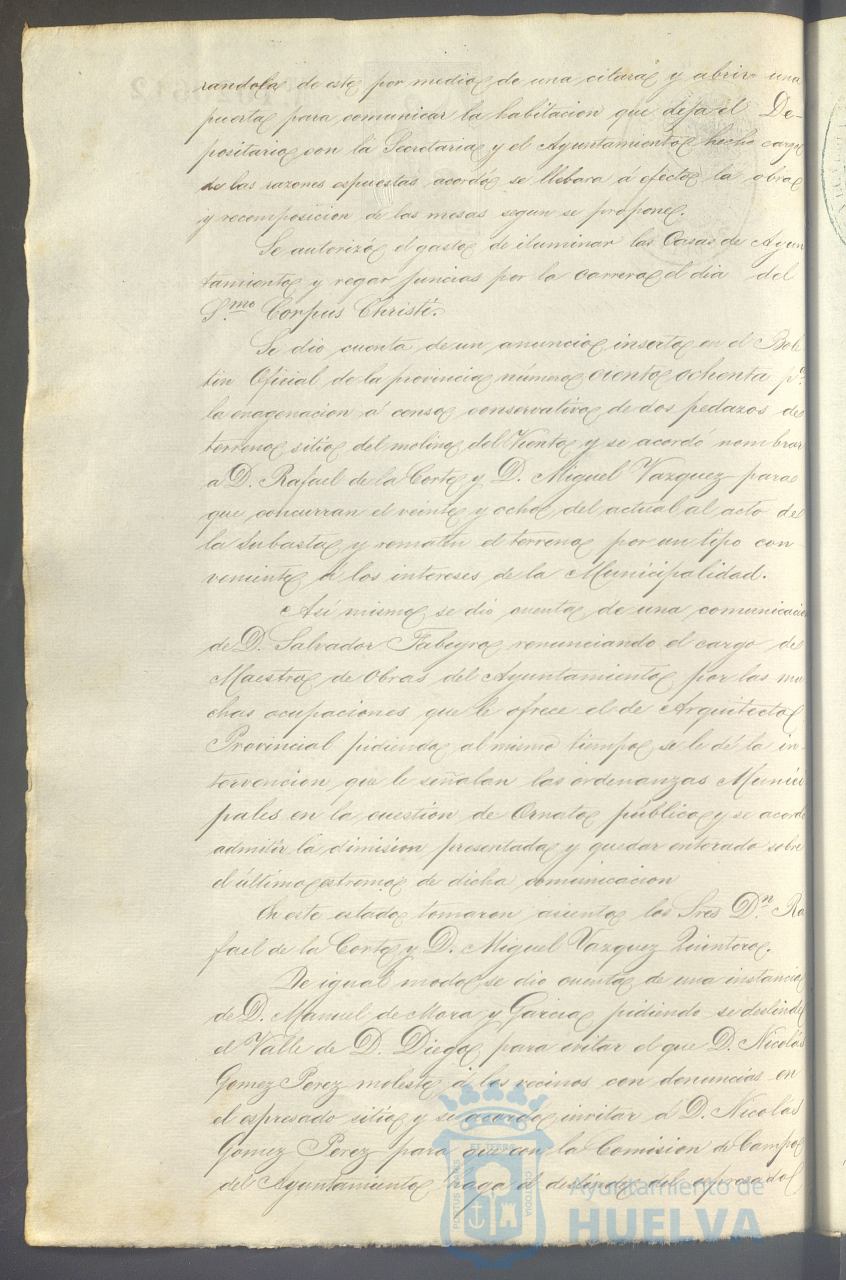 randola de este por medio de una citara y abrir una
puerta para comunicar la habitacion que deja el De-
positario con la Secretaria y el Ayuntamiento hecho cargo
de las razones espuestas acordó se llebara á efecto la obra
y recomposicion de las mesas segun se propone.
Se autorizó el gasto de iluminar las Casas de Ayun
tamiento y regar juncias por la carrera el dia del
S.mo Corpus Christi.
Se dio cuenta de un anuncio inserto en el Bole
tin Oficial de la provincia número ciento ochenta pª
la enagenacion á censo conservativo de dos pedazos de
terreno sitio del molino del Viento y se acordó nombrar
a D. Rafael de la Corte y D. Miguel Vazquez para
que concurran el veinte y ocho del actual al acto de
la Subasta y rematen el terreno por un tipo con
veniente á los intereses de la Municipalidad.
Asi mismo se dio cuenta de una comunicacion
de D. Salvador renunciando el cargo de
Maestro de Obras del Ayuntamiento por las mu
chas ocupaciones que le ofrece el de Arquitecto
Provincial pidiendo al mismo tiempo se le dé la in-
tervencion que le señalan las ordenanzas Munici
pales en la cuestion de Ornato público y se acordó
admitir la dimision presentada y quedar enterado sobre
el último estremo de dicha comunicacion
En este estado tomaron asiento los Sres D.n Ra
fael de la Corte y D. Miguel Vazquez Quintero.
De igual modo se dio cuenta de una instancia
de D. Manuel de Mora y Garcia pidiendo se deslinde
el Valle de D. Diego para evitar el que D. Nicolás
Gomez Perez moleste á los vecinos con denuncias en
el espresado sitio y se acordó invitar á D. Nicolás
Gomez Perez para que con la Comision de Campo
del Ayuntamiento haga el deslinde del espresado
PORTUS MARIS
ET TERRE
CUSTODIA
Ayuntamiento de
HUELVA